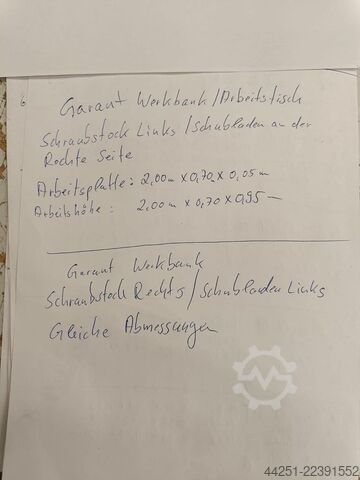 Garant Werkbank/Arbeitstisch
Schraubstock Links/Schubladen an der
Rechte Seite
Arbeitsplatte: 2,00m x 0,70 x 0,05m
Arbeitshöhe: 2,00m x 0,70 x 0,95m
Garant Werkbank
Schraubstock Rechts/Schubladen Links
Gleiche Abmessungen
44251-22391552